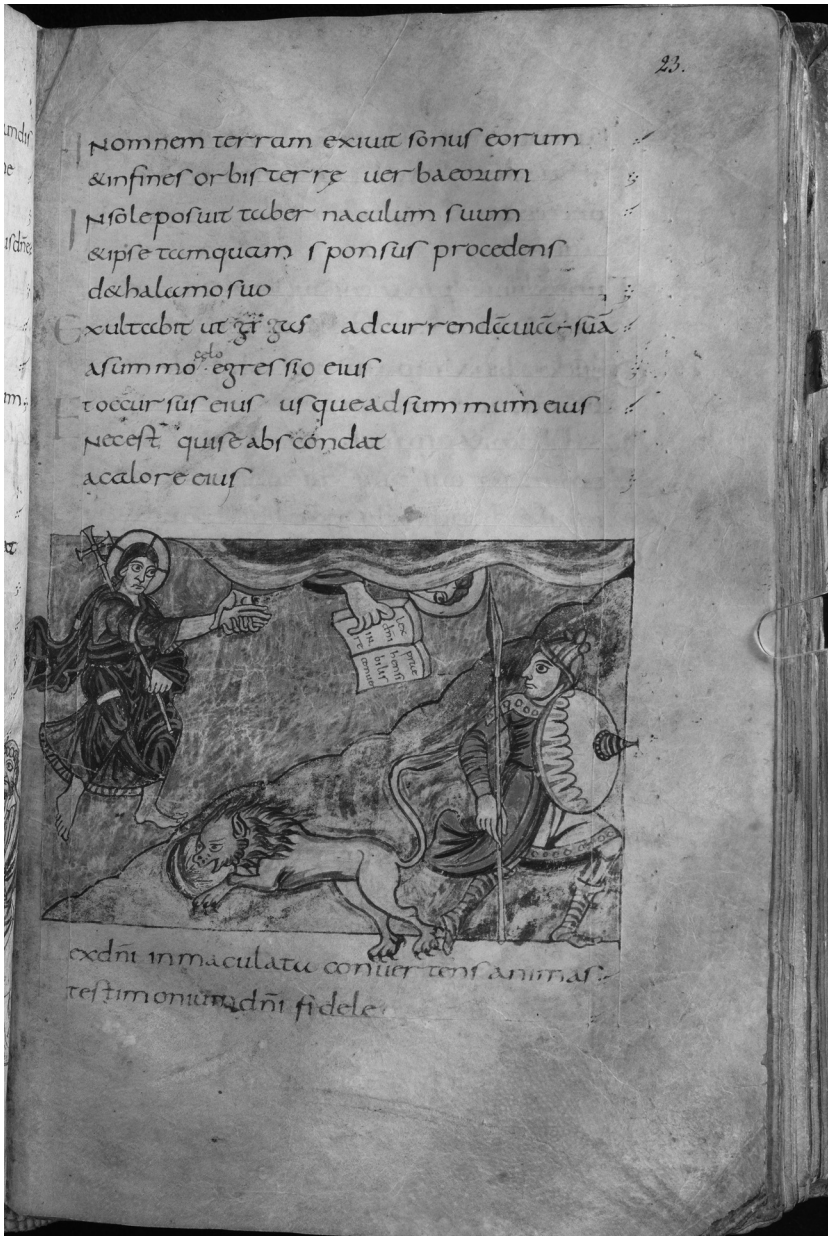 23.
In omnem terram exivit sonus eorum
& in fines orbis terrę verba eorum
In sole posuit tabernaculum suum
& ipse tamquam sponsus procedens
de thalamo suo
Exultabit ut gigas ad currendā viā suā
a summo celo egressio eius
Et occursus eius usque ad summum eius
Nec est qui se abscondat
a calore eius
lex
dn̄i
in
re
præ
hensi
bilis
exdn̄i inmaculata convertens animas
testimonium dn̄i fidele